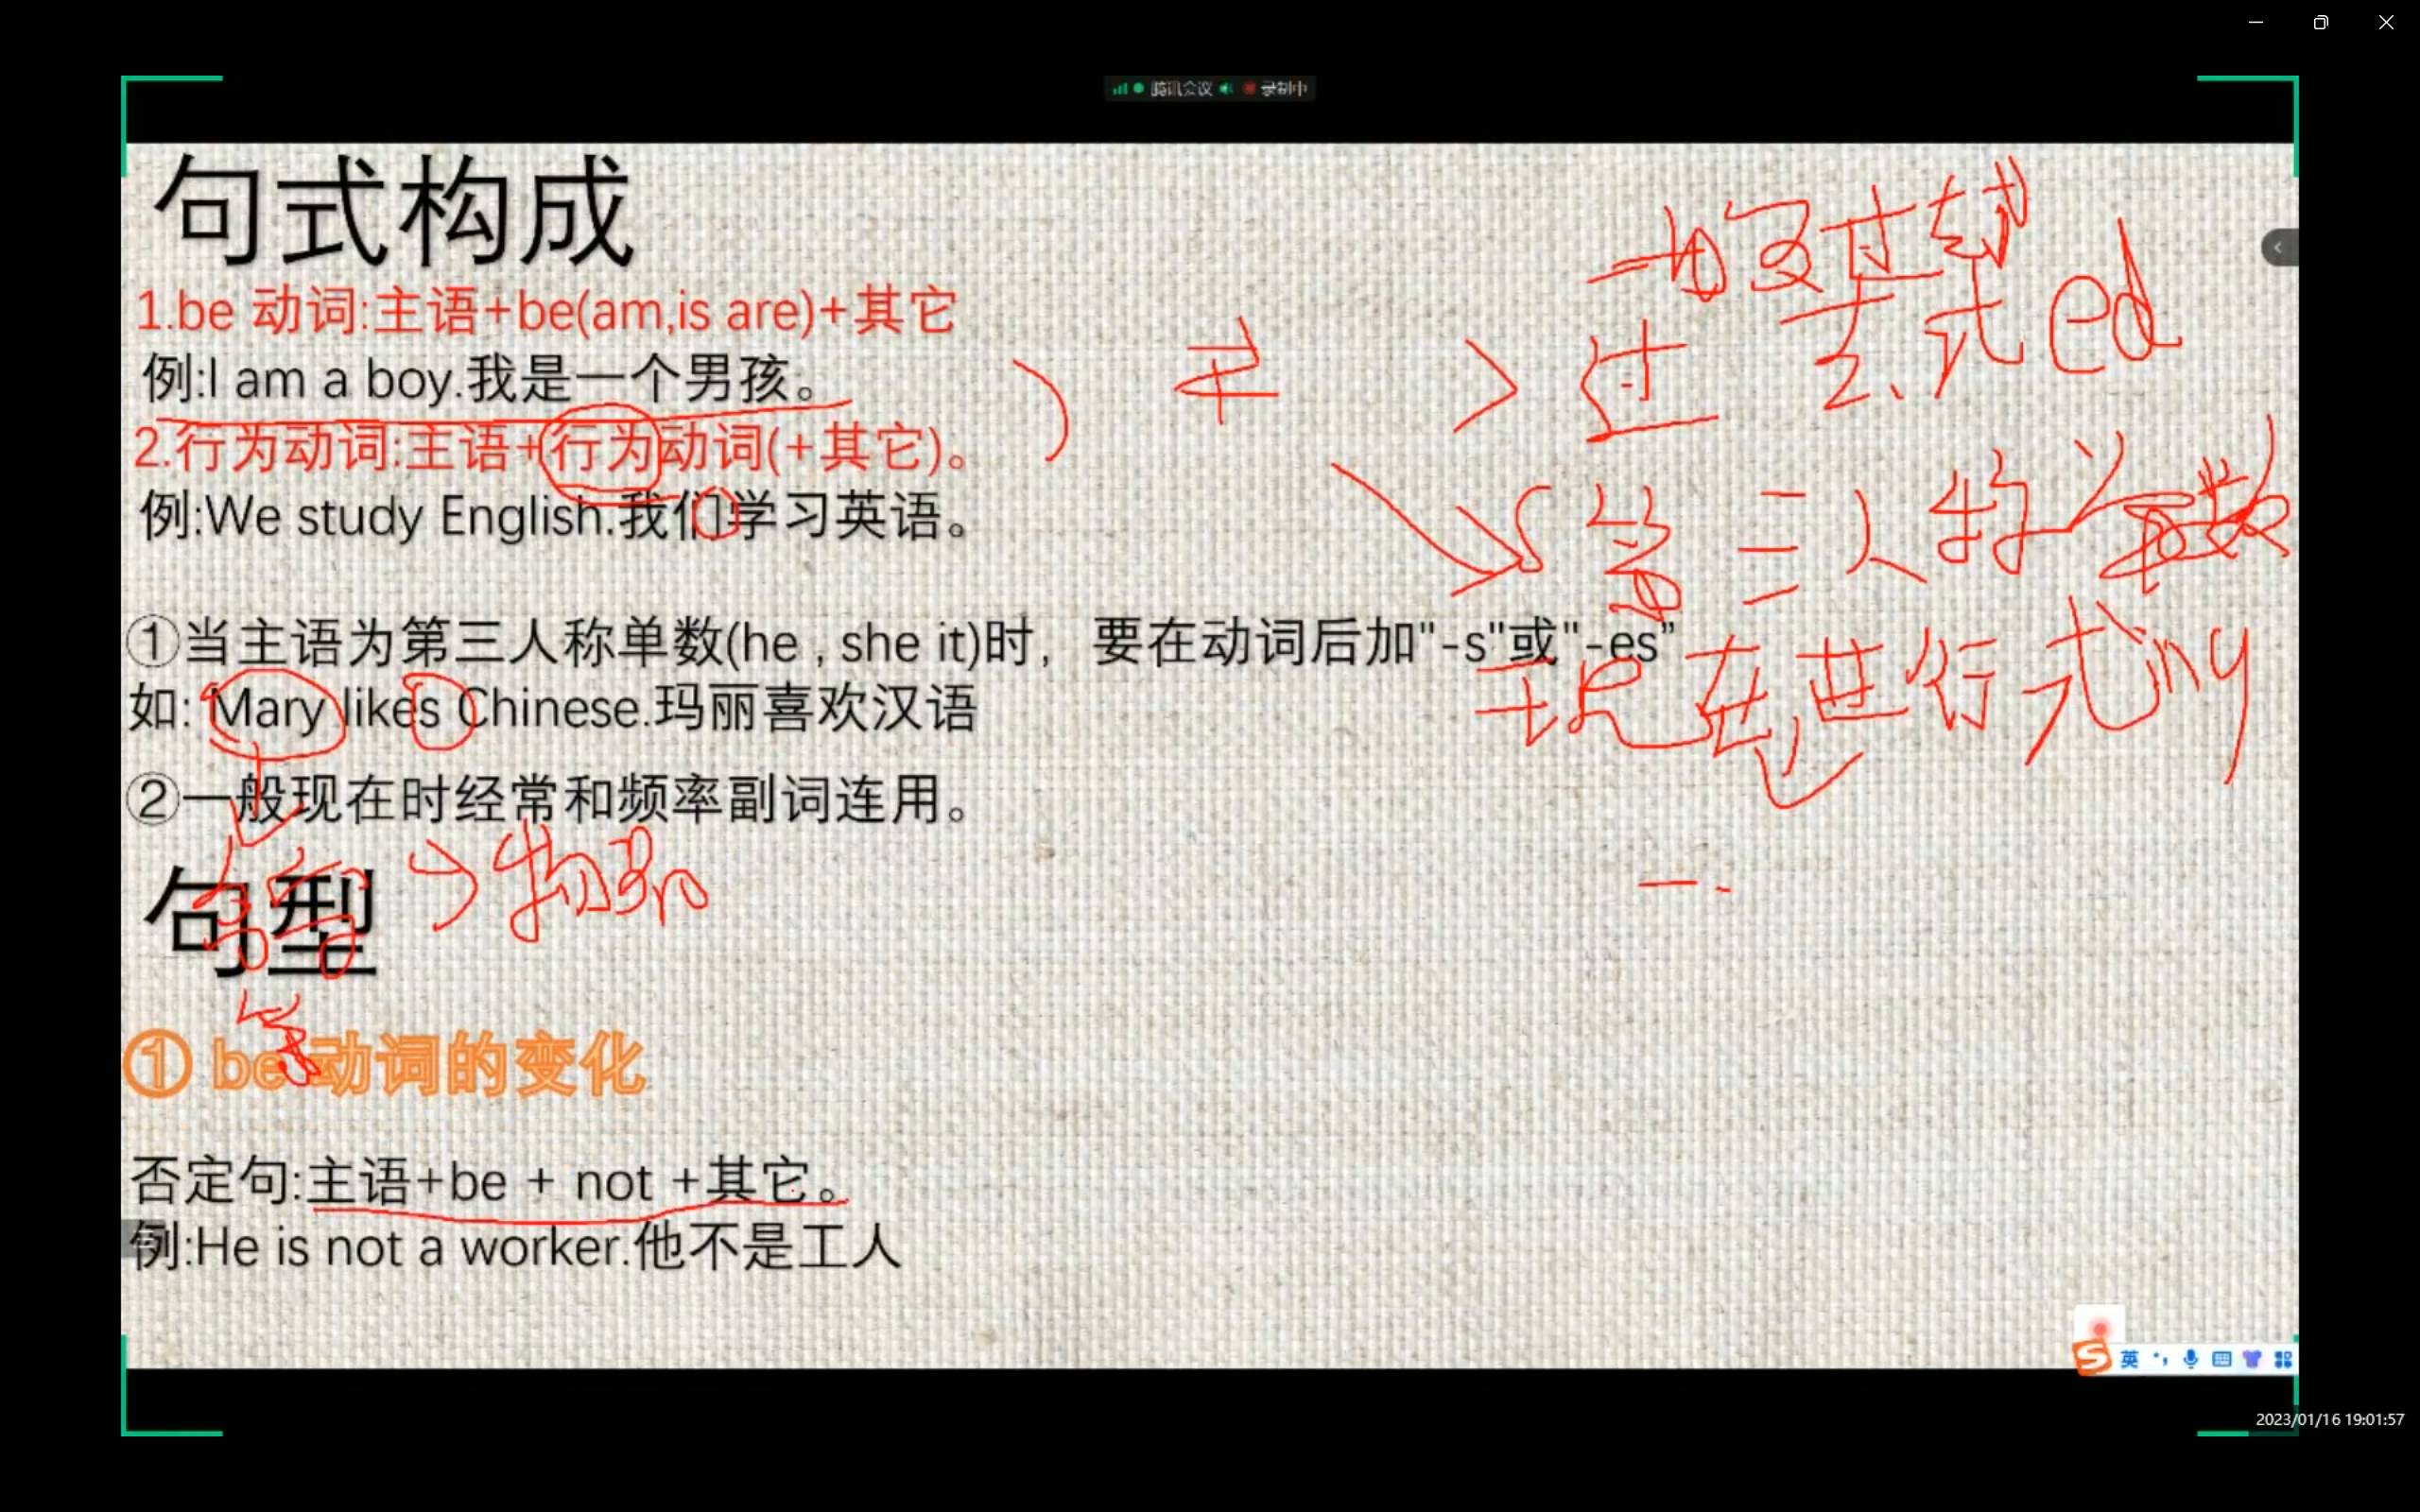 腾讯会议 录制中
句式构成
1.be 动词:主语+be(am,is are)+其它
例:I am a boy.我是一个男孩。
2.行为动词:主语+行为动词(+其它)。
例:We study English.我们学习英语。
①当主语为第三人称单数(he , she it)时，要在动词后加"-s"或"-es”
如: Mary likes Chinese.玛丽喜欢汉语
②一般现在时经常和频率副词连用。
句型
① be 动词的变化
否定句:主语+be + not +其它。
例:He is not a worker.他不是工人
过去式 ed
现在进行式 ing
英
2023/01/16 19:01:57